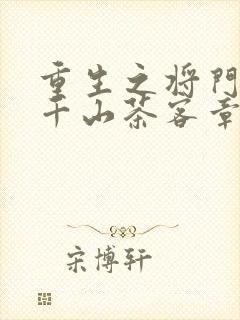 重生之将門
千山茶客章
宋博轩